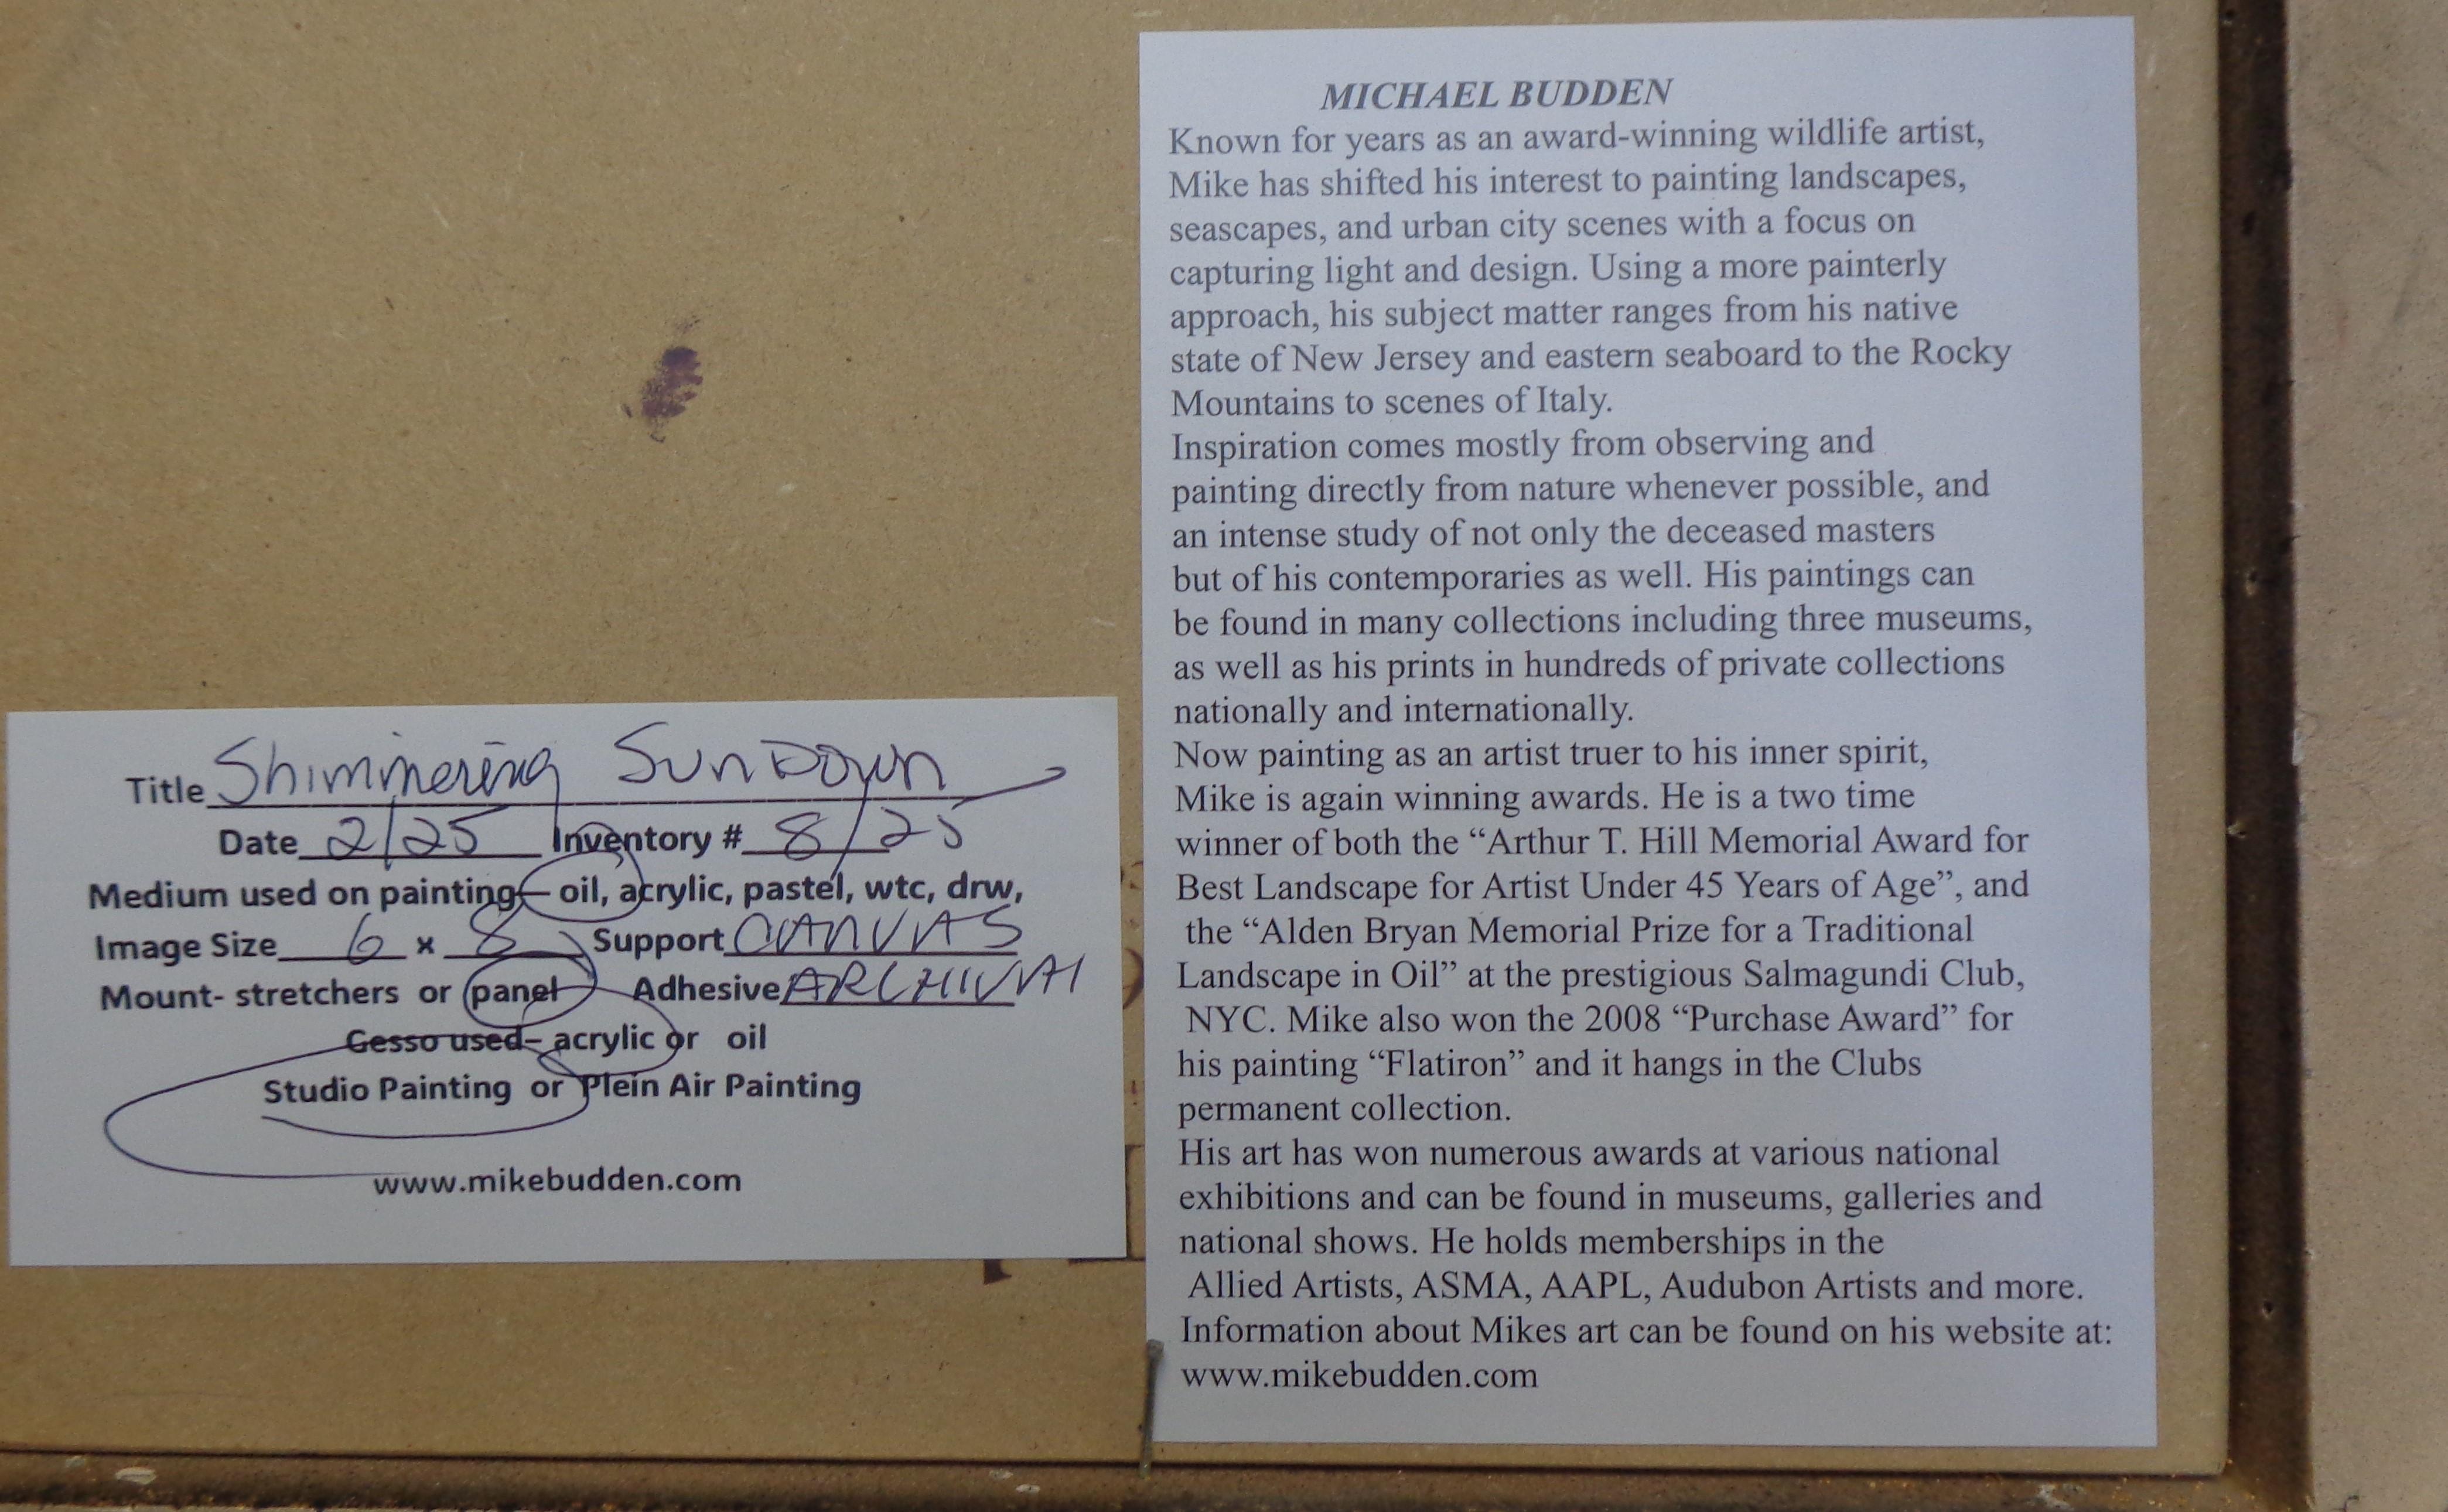 Title Shimmering SunDown
Date 2/25 Inventory # 8/25
Medium used on painting– oil, acrylic, pastel, wtc, drw,
Image Size 6 x 8 Support CANVAS
Mount- stretchers or panel Adhesive ARCHIVAl
Gesso used– acrylic or oil
Studio Painting or Plein Air Painting
www.mikebudden.com
MICHAEL BUDDEN
Known for years as an award-winning wildlife artist,
Mike has shifted his interest to painting landscapes,
seascapes, and urban city scenes with a focus on
capturing light and design. Using a more painterly
approach, his subject matter ranges from his native
state of New Jersey and eastern seaboard to the Rocky
Mountains to scenes of Italy.
Inspiration comes mostly from observing and
painting directly from nature whenever possible, and
an intense study of not only the deceased masters
but of his contemporaries as well. His paintings can
be found in many collections including three museums,
as well as his prints in hundreds of private collections
nationally and internationally.
Now painting as an artist truer to his inner spirit,
Mike is again winning awards. He is a two time
winner of both the “Arthur T. Hill Memorial Award for
Best Landscape for Artist Under 45 Years of Age”, and
the “Alden Bryan Memorial Prize for a Traditional
Landscape in Oil” at the prestigious Salmagundi Club,
NYC. Mike also won the 2008 “Purchase Award” for
his painting “Flatiron” and it hangs in the Clubs
permanent collection.
His art has won numerous awards at various national
exhibitions and can be found in museums, galleries and
national shows. He holds memberships in the
Allied Artists, ASMA, AAPL, Audubon Artists and more.
Information about Mikes art can be found on his website at:
www.mikebudden.com